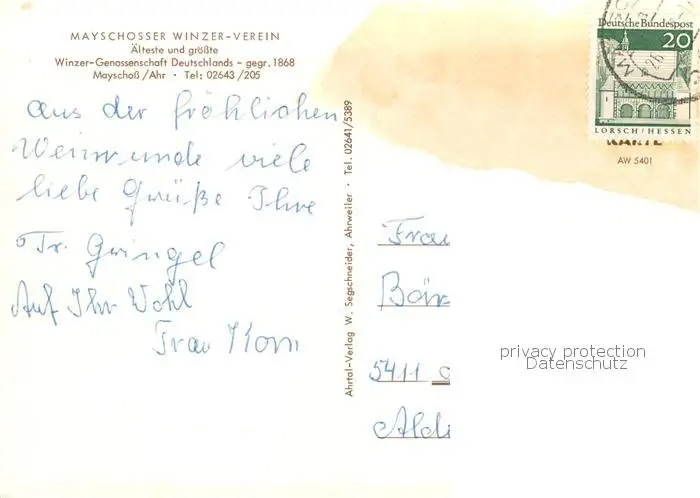 MAYSCHOSSER WINZER-VEREIN
Älteste und größte
Winzer-Genossenschaft Deutschlands - gegr. 1868
Mayschoß/Ahr • Tel: 02643/205
aus der fröhlichen
Weinrunde viele
liebe Grüße Ihre
Fr. Gringel
Auf Ihr Wohl
Frau Korn
Ahrtal-Verlag W. Segschneider, Ahrweiler • Tel. 02641/5389
Deutsche Bundespost
20
LORSCH/HESSEN
KARTE
AW 5401
Frau
Bär
5411
Ald
privacy protection
Datenschutz